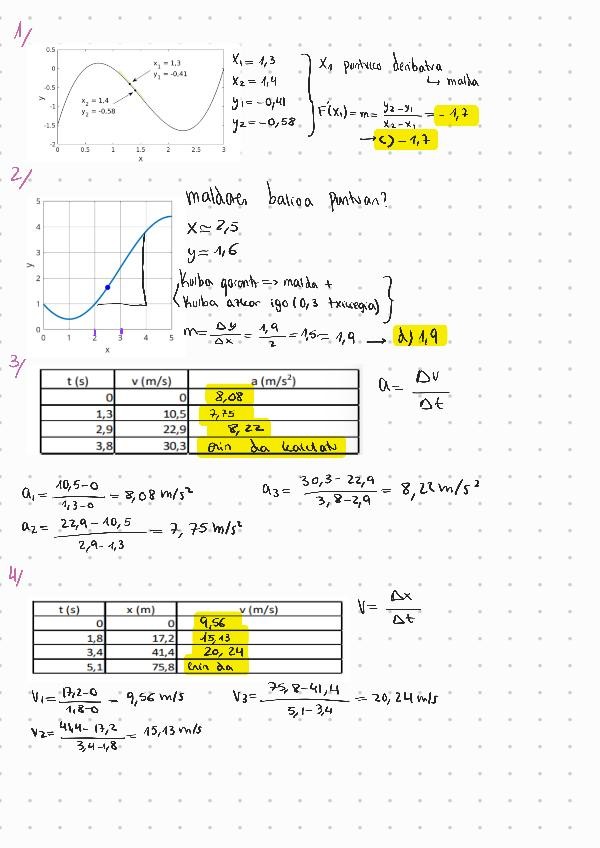 1/
x₁ = 1,3
y₁ = -0,41
x₂ = 1,4
y₂ = -0.58
0.5
0
-0.5
-1
-1.5
-2
y
0 0.5 1 1.5 2 2.5 3
x
x₁ = 1,3
x₂ = 1,4
y₁ = -0,41
y₂ = -0,58
X₁ puntuco deribatua
↳ malda
F'(x₁) = m = (y₂ - y₁)/(x₂ - x₁) = -1,7
→ c) -1,7
2/
5
4
3
2
1
0
y
0 1 2 3 4 5
x
maldaren balioa puntuan?
x ≈ 2,5
y = 1,6
Kurba gorantz => malda +
Kurba azkar igo (0,3 txikiegia)
m = Δy/Δx = 1,9/2 = 1,5 = 1,9 → d) 1,9
3/
t (s) v (m/s) a (m/s²)
0 0 8,08
1,3 10,5 7,75
2,9 22,9 8,22
3,8 30,3 ezin da kalkulatu
a = Δv/Δt
a₁ = (10,5-0)/(1,3-0) = 8,08 m/s²
a₃ = (30,3-22,9)/(3,8-2,9) = 8,22 m/s²
a₂ = (22,9-10,5)/(2,9-1,3) = 7,75 m/s²
4/
t (s) x (m) v (m/s)
0 0 9,56
1,8 17,2 15,13
3,4 41,4 20,24
5,1 75,8 ezin da
V = Δx/Δt
V₁ = (17,2-0)/(1,8-0) = 9,56 m/s
V₃ = (75,8-41,4)/(5,1-3,4) = 20,24 m/s
V₂ = (41,4-17,2)/(3,4-1,8) = 15,13 m/s